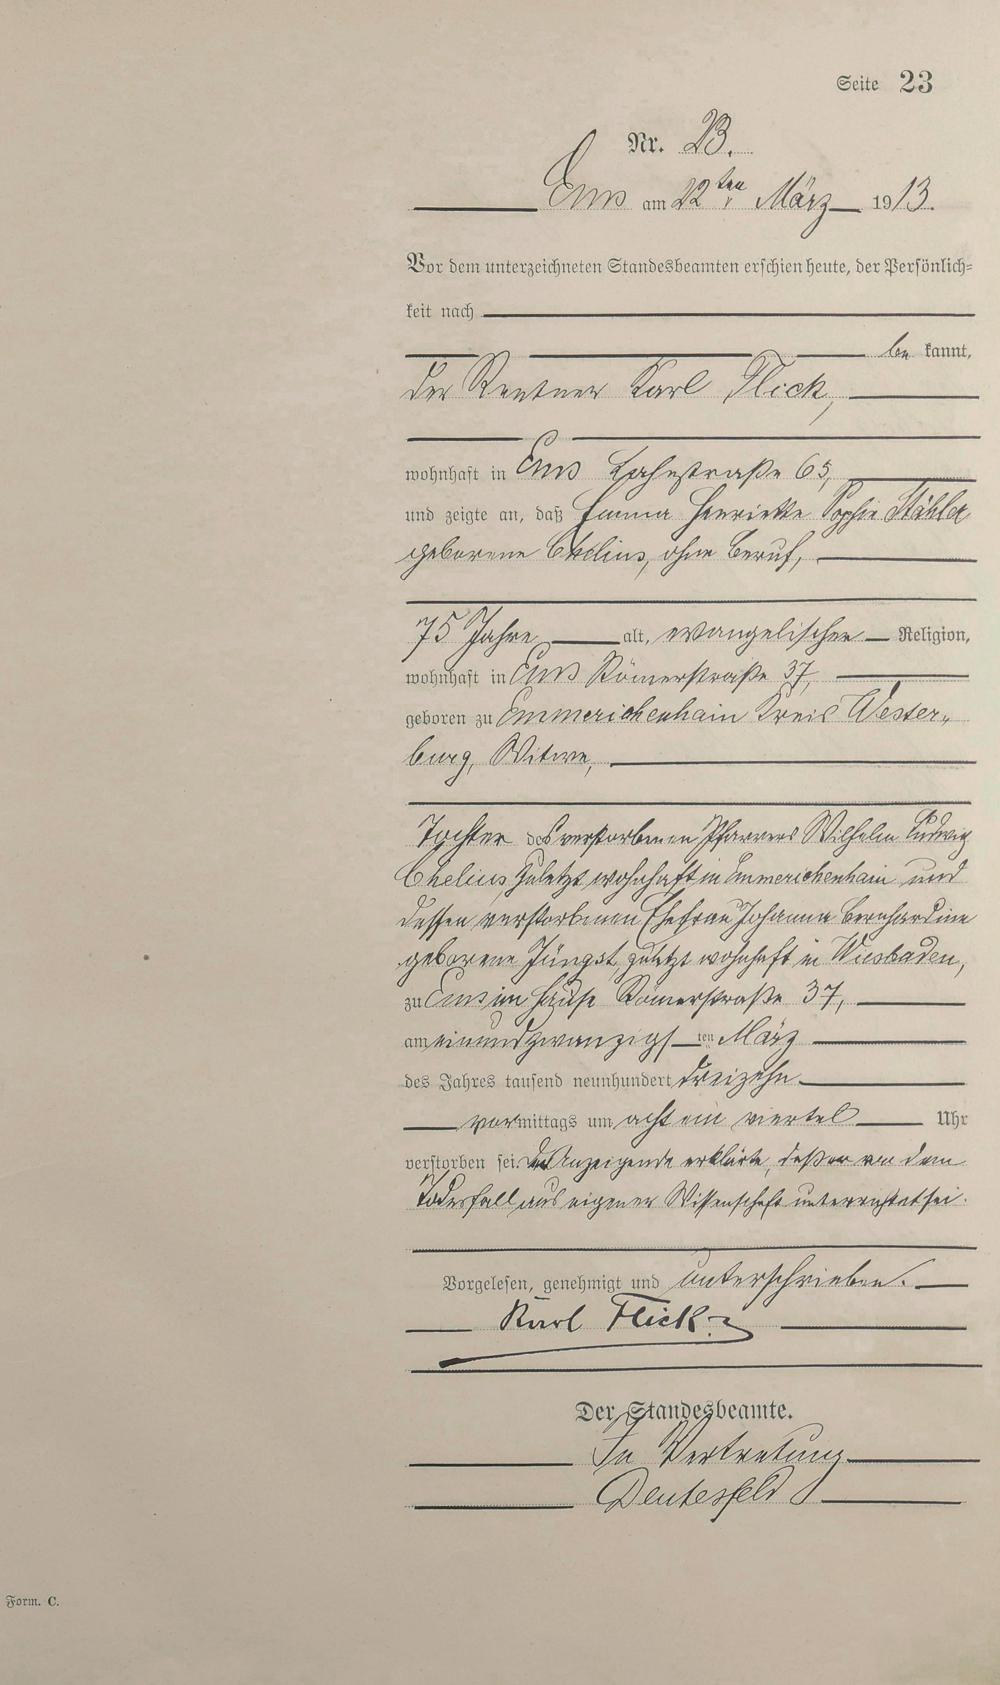 Seite 23
Nr. 23.
Ems am 22ten März 1913.
Vor dem unterzeichneten Standesbeamten erschien heute, der Persönlich=
keit nach
be kannt,
der Rentner Karl Flick,
wohnhaft in Ems Lahnstraße 65,
und zeigte an, daß Emma Henriette Sophie Stähler
geborene Chelius, ohne Beruf,
75 Jahre alt, evangelischer Religion,
wohnhaft in Ems Römerstraße 37,
geboren zu Emmerichenhain Kreis Wester„
burg, Witwe,
Tochter des verstorbenen Pfarrers Wilhelm Ludwig
Chelius, zuletzt wohnhaft in Emmerichenhain und
dessen verstorbenen Ehefrau Johanna Bernhardine
geborene Jüngst, zuletzt wohnhaft in Wiesbaden,
zu Ems im Hause Römerstraße 37,
am einundzwanzigsten März
des Jahres tausend neunhundert dreizehn
vormittags um acht ein viertel Uhr
verstorben sei. Der Anzeigende erklärte, daß er von dem
Todesfall aus eigener Wissenschaft unterrichtet sei.
Vorgelesen, genehmigt und unterschrieben.
Karl Flick
Der Standesbeamte.
In Vertretung
Deutesfeld
Form. C.